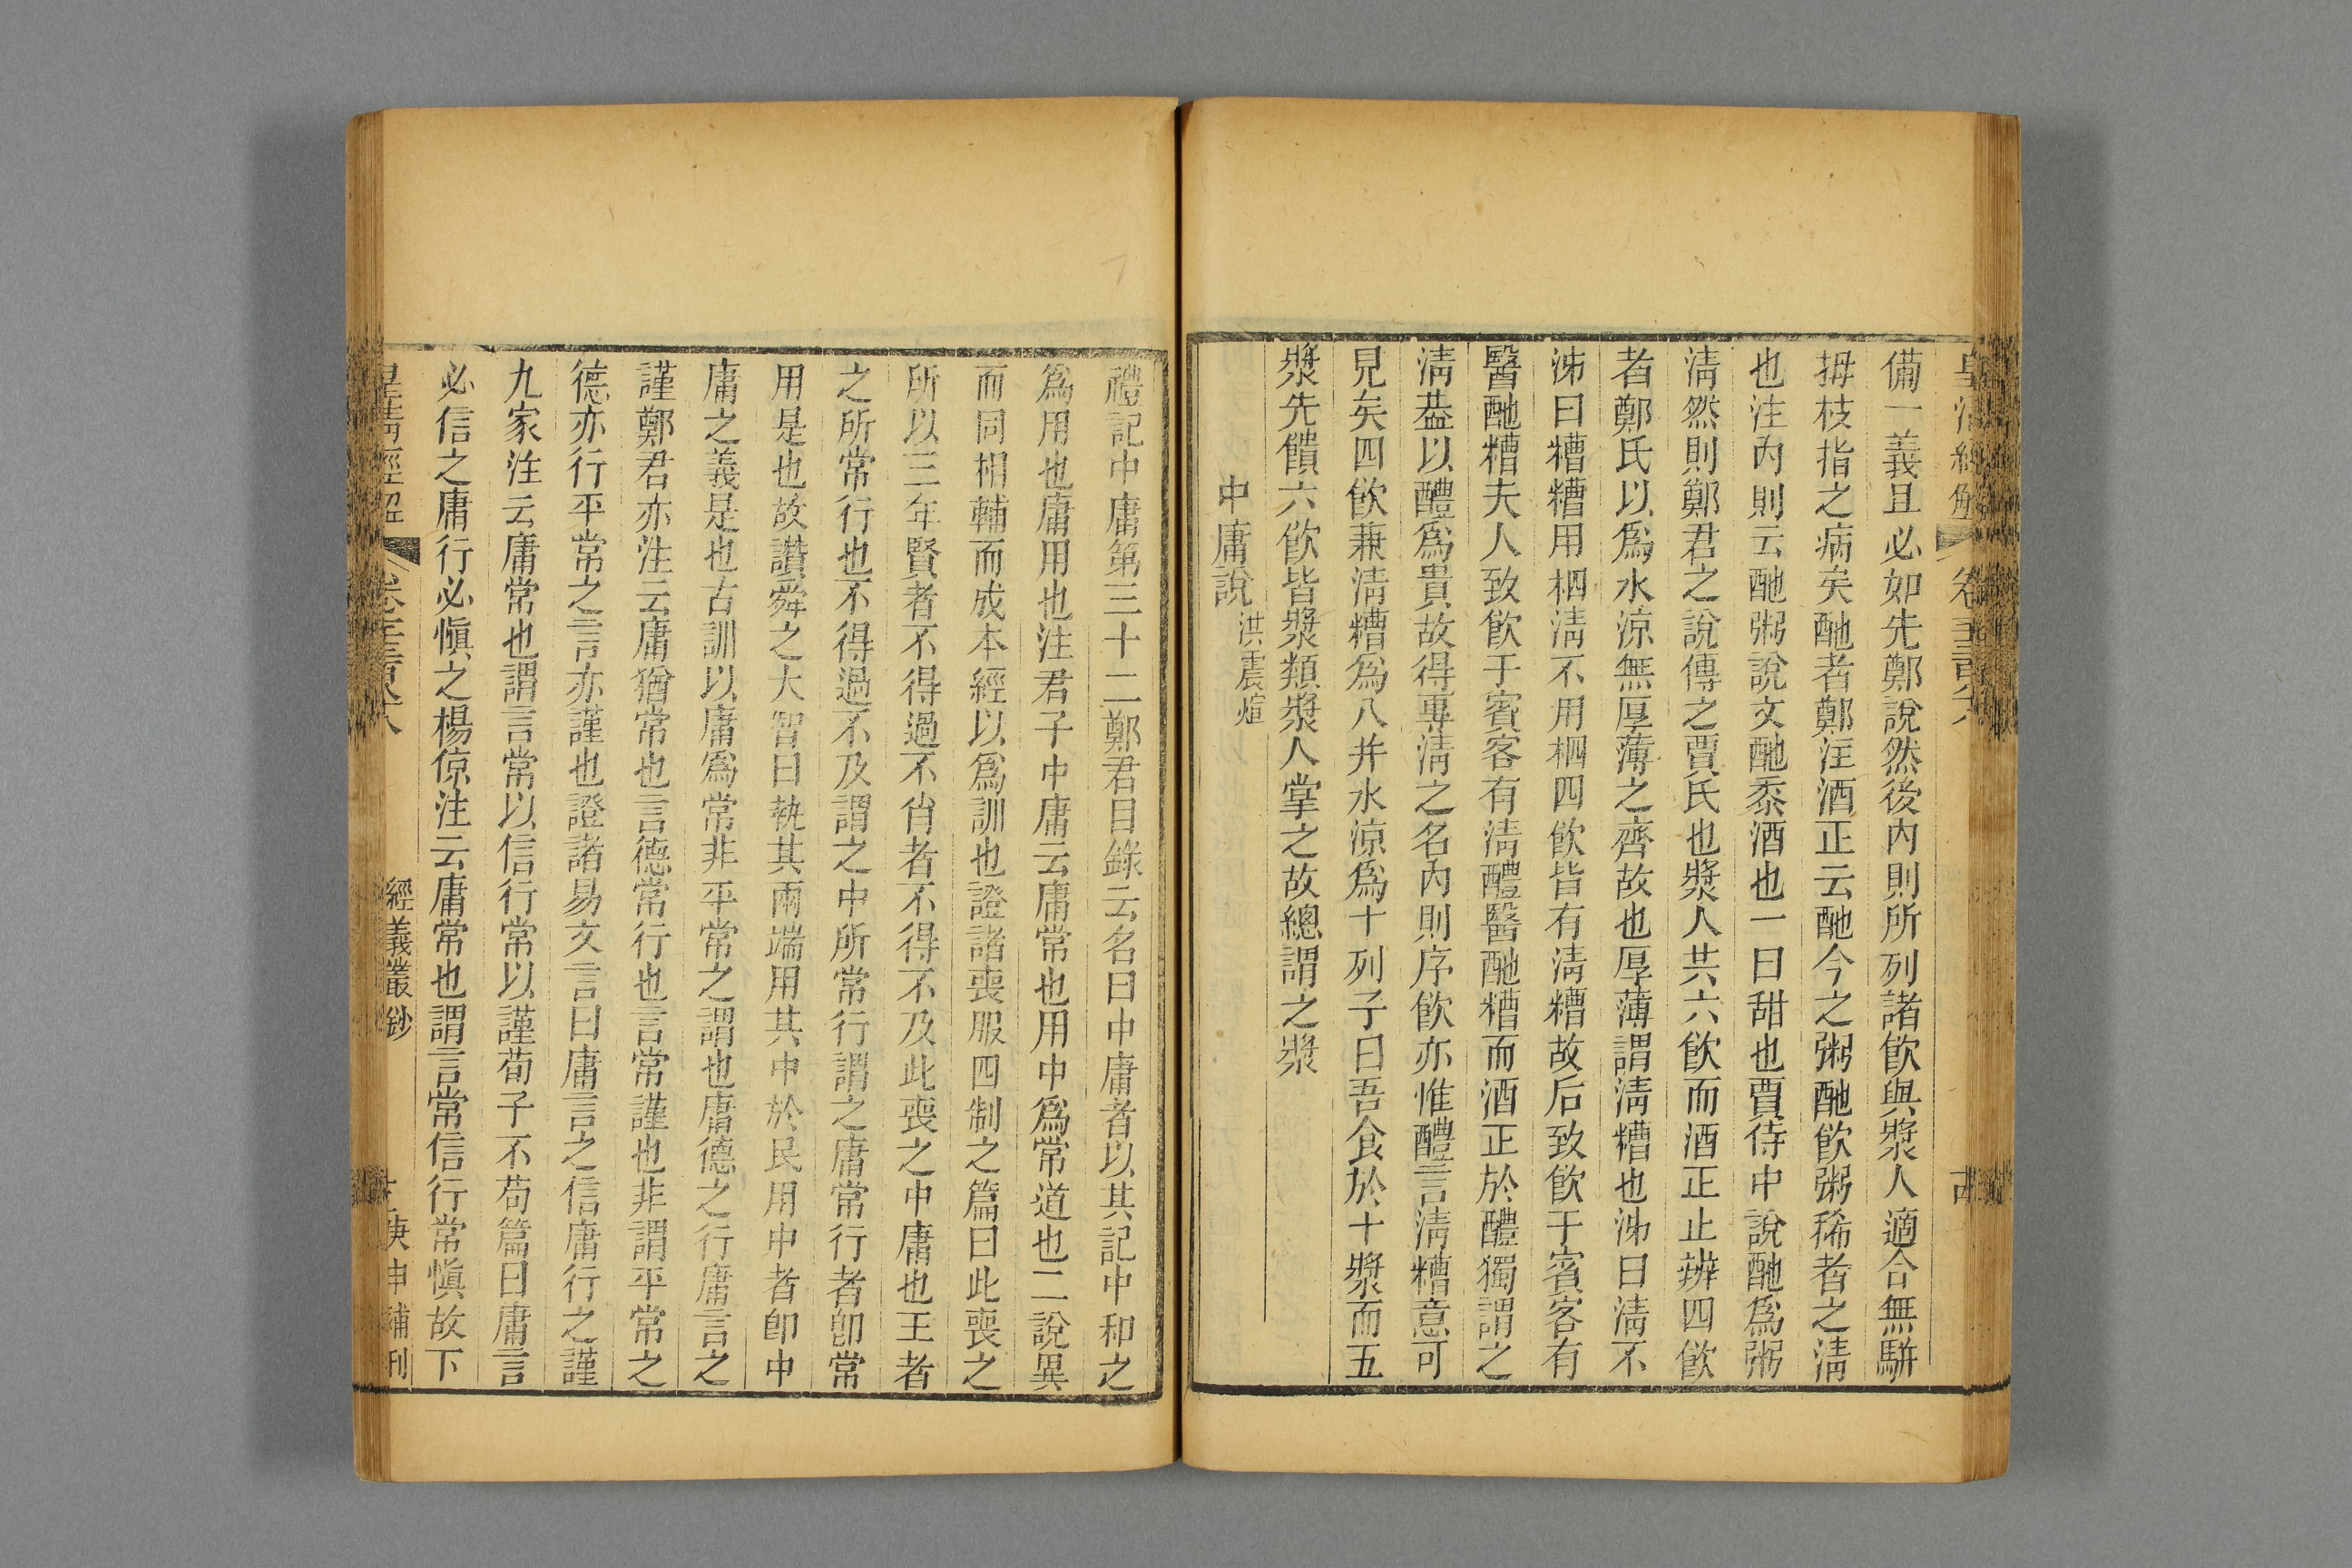 備一義且必如先鄭說然後內則所列諸飮與漿人適合無駢
拇枝指之病矣酏者鄭注酒正云酏今之粥酏飮粥稀者之淸
也注內則云酏粥說文酏黍酒也一曰甜也賈侍中說酏爲粥
淸然則鄭君之說傳之賈氏也漿人共六飮而酒正止辨四飮
者鄭氏以爲水涼無厚薄之齊故也厚薄謂淸糟也泲曰淸不
泲曰糟糟用柶淸不用柶四飮皆有淸糟故后致飮于賓客有
醫酏糟夫人致飮于賓客有淸醴醫酏糟而酒正於醴獨謂之
淸葢以醴爲貴故得專淸之名內則序飮亦惟醴言淸糟意可
見矣四飮兼淸糟爲八并水涼爲十列子曰吾食於十漿而五
漿先饋六飮皆漿類漿人掌之故總謂之漿
中庸說 洪震煊
禮記中庸第三十二鄭君目錄云名曰中庸者以其記中和之
爲用也庸用也注君子中庸云庸常也用中爲常道也二說異
而同相輔而成本經以爲訓也證諸喪服四制之篇曰此喪之
所以三年賢者不得過不肖者不得不及此喪之中庸也王者
之所常行也不得過不及謂之中所常行謂之庸常行者卽常
用是也故讚舜之大智曰執其兩端用其中於民用中者卽中
庸之義是也古訓以庸爲常非平常之謂也庸德之行庸言之
謹鄭君亦注云庸猶常也言德常行也言常謹也非謂平常之
德亦行平常之言亦謹也證諸易文言曰庸言之信庸行之謹
九家注云庸常也謂言常以信行常以謹荀子不苟篇曰庸言
必信之庸行必愼之楊倞注云庸常也謂言常信行常愼故下
皇淸經解 經義叢鈔 庚申補刊